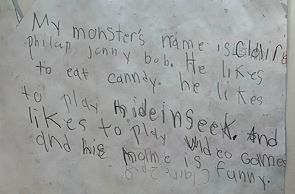 My monster's name is
philap jonny bob. He likes
to eat canndy. he likes
to play hideinseek. And
likes to play video Games
and his mome is funny.